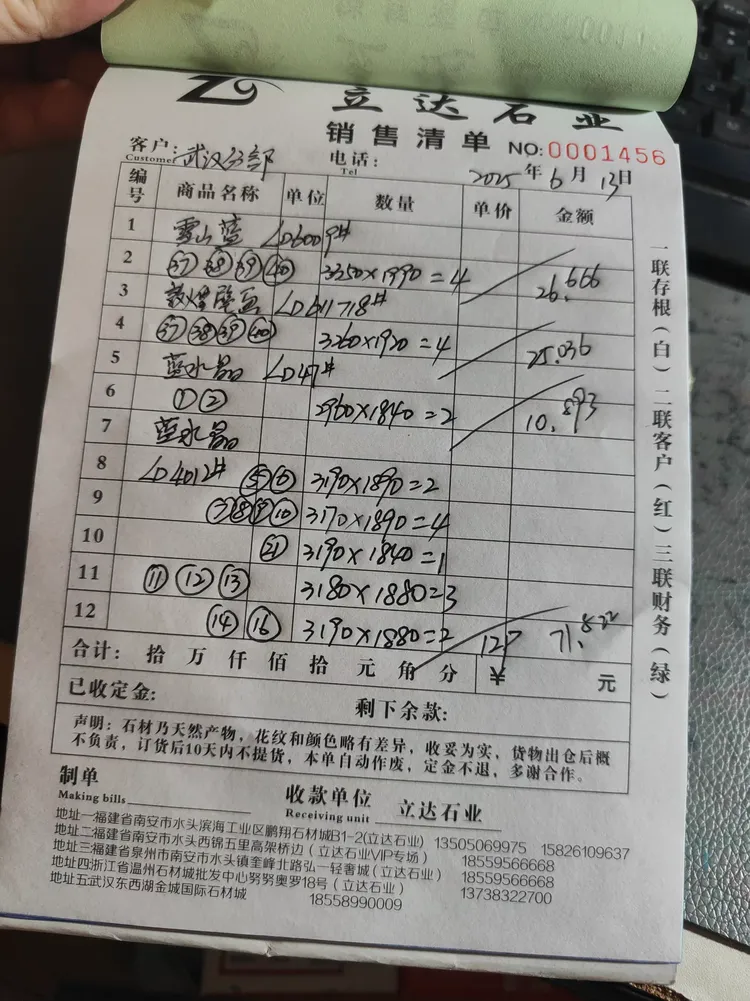 立达石业
销售清单 NO:0001456
客户: 武汉分部 电话:
Customer Tel 2025年6月13日
编号 商品名称 单位 数量 单价 金额
1 雪山蓝 LD6009#
2 ㊲㊳㊴㊵ 3350×1990=4 26.666
3 敦煌壁画 LD611718#
4 ㊲㊳㊴㊵ 3260×1920=4 25.036
5 蓝水晶 LD47#
6 ①② 2960×1840=2 10.893
7 蓝水晶
8 LD4012# ⑤⑥ 3190×1890=2
9 ⑦⑧⑨⑩ 3170×1890=4
10 ㉑ 3190×1840=1
11 ⑪⑫⑬ 3180×1880=3
12 ⑭⑯ 3190×1880=2 12P 71.822
合计: 拾 万 仟 佰 拾 元 角 分 ¥ 元
已收定金: 剩下余款:
声明:石材乃天然产物,花纹和颜色略有差异,收妥为实,货物出仓后概
不负责,订货后10天内不提货,本单自动作废,定金不退,多谢合作。
制单 收款单位 立达石业
Making bills Receiving unit
地址一:福建省南安市水头滨海工业区鹏翔石材城B1-2(立达石业) 13505069975 15826109637
地址二:福建省南安市水头西锦五里高架桥边(立达石业VIP专场) 18559566668
地址三:福建省泉州市南安市水头镇奎峰北路弘一轻奢城(立达石业) 18559566668
地址四浙江省温州石材城批发中心努努奥罗18号(立达石业) 13738322700
地址五武汉东西湖金城国际石材城 18558990009
一联存根(白)二联客户(红)三联财务(绿)